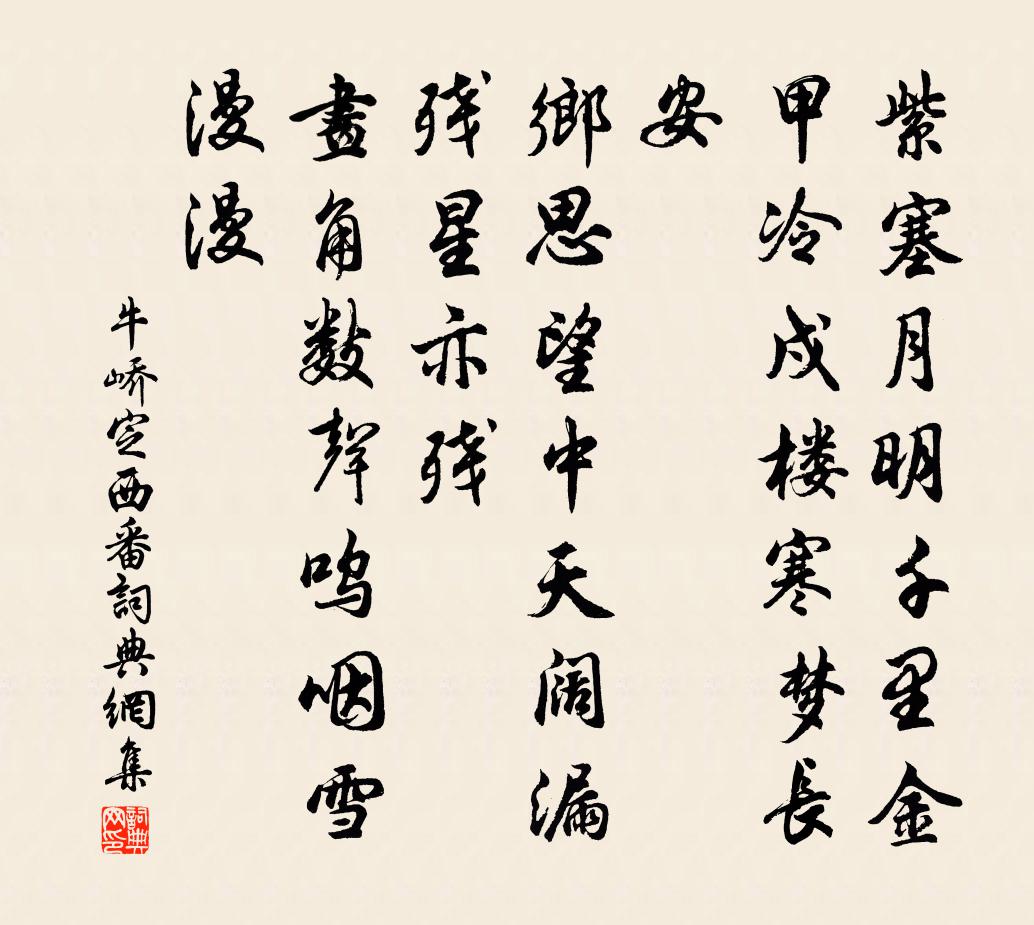 紫塞月明千里金
甲冷戍楼寒梦長
安
鄉思望中天阔漏
残星亦残
畫角数聲呜咽雪
漫漫
牛峤定西番詞典網集
詞典网印